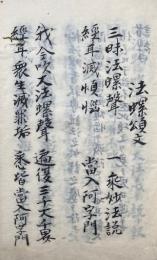 法螺頌文
三昧法螺聲　一乘妙法說
經耳滅煩惱　當入阿字門
我今吹大法螺聲　遍復三千大千界
經耳衆生滅罪垢　悉皆當入阿字門